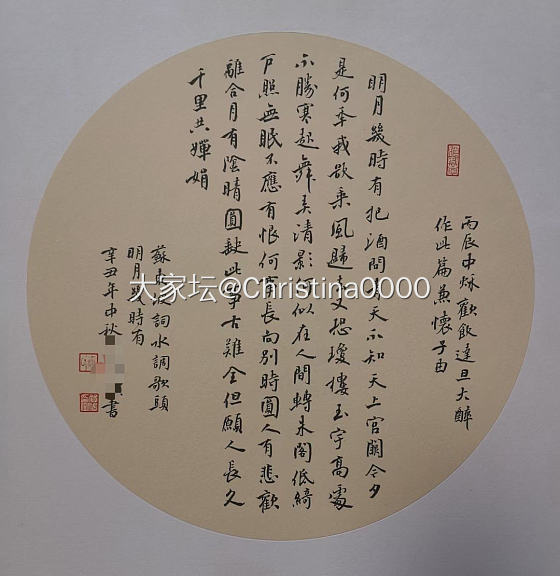 丙辰中秌歡飲達旦大醉
作此篇兼懷子由
明月幾時有把酒問青天不知天上宫闕今夕
是何季我欲乘風歸去又恐瓊樓玉宇高處
不勝寒起舞弄清影何似在人間轉朱閣低綺
户照無眠不應有恨何事長向別時圓人有悲歡
離合月有陰晴圓缺此事古難全但願人長久
千里共嬋娟
蘇東坡詞水調歌頭
明月幾時有
辛丑年中秋
書
大家坛@Christina0000